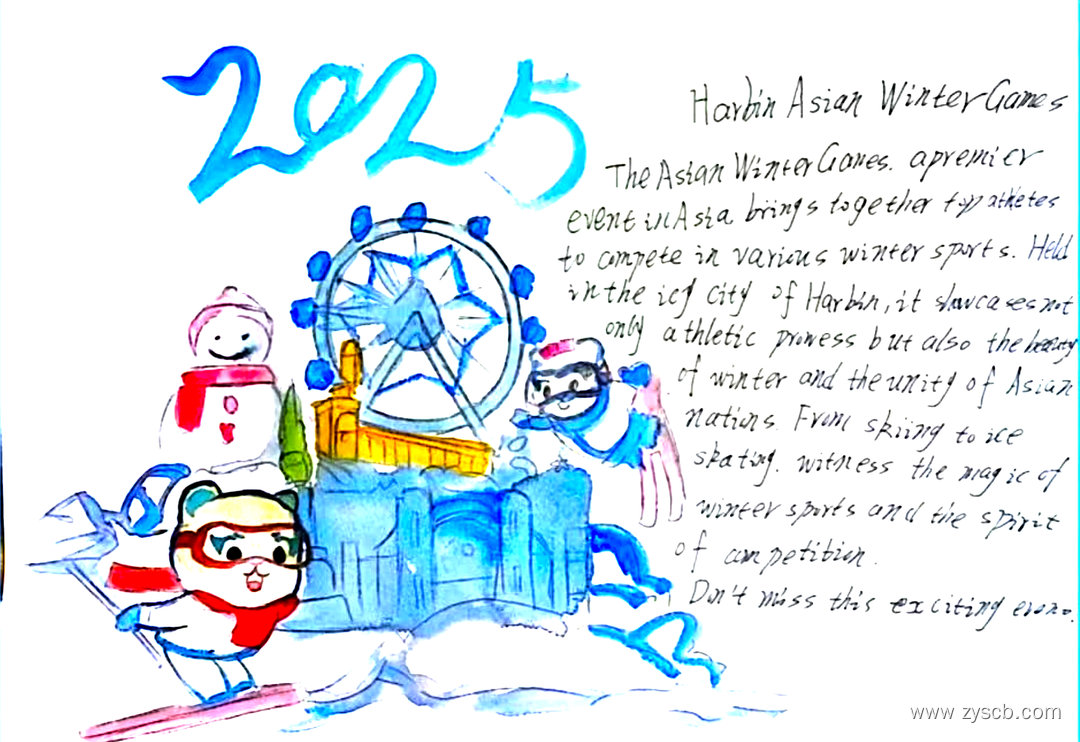 2025
Harbin Asian Winter Games
The Asian Winter Games. a premier
event in Asia brings together top athletes
to compete in various winter sports. Held
in the icy city of Harbin, it showcases not
only athletic prowess but also the beauty
of winter and the unity of Asian
nations. From skiing to ice
skating. witness the magic of
winter sports and the spirit
of competition.
Don't miss this exciting
www.zyscb.com